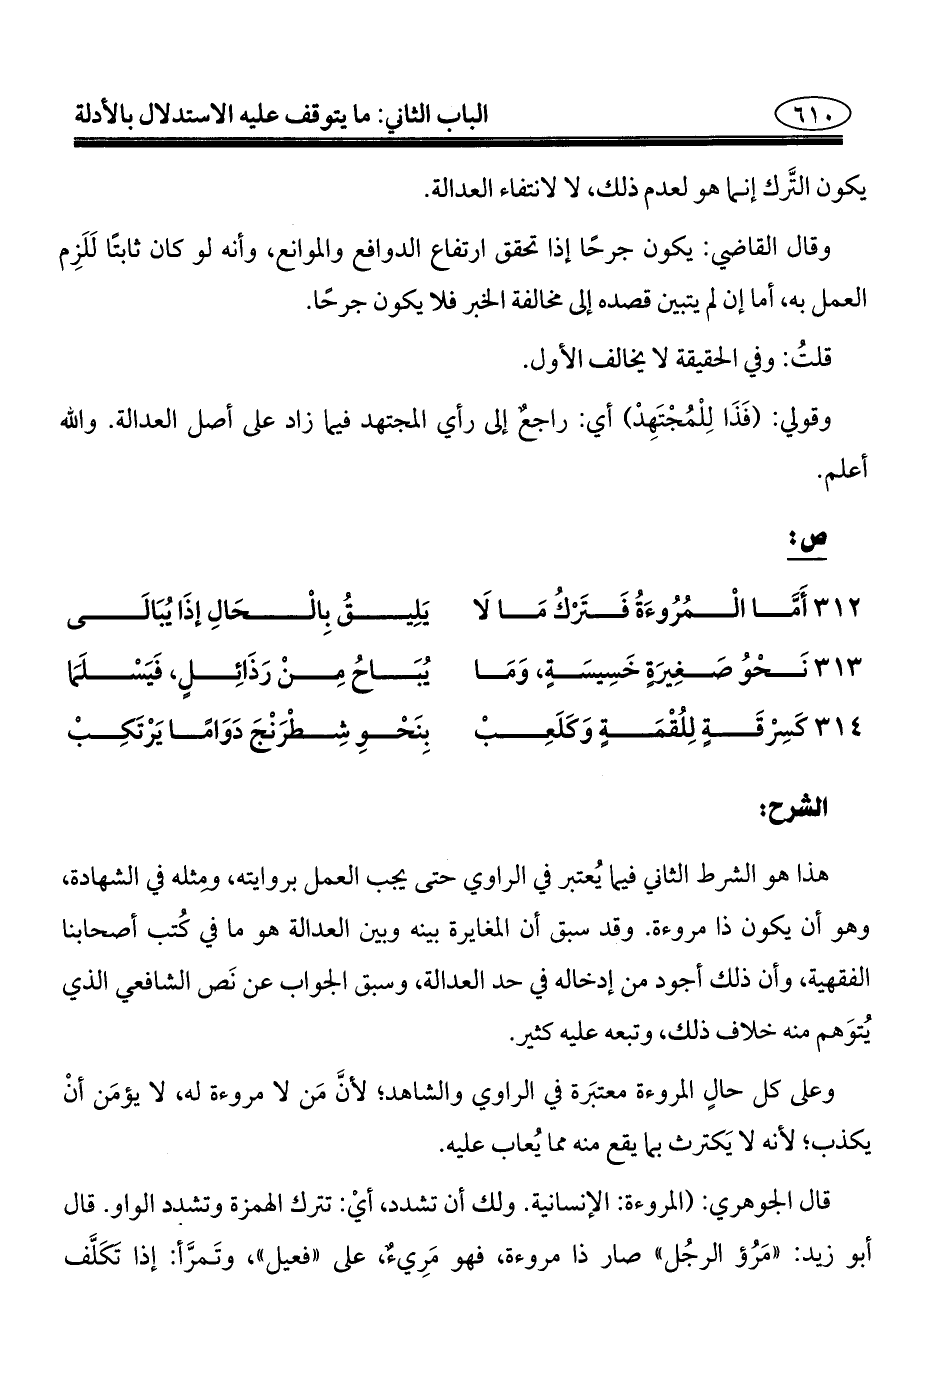 ٦١٠ الباب الثاني: ما يتوقف عليه الاستدلال بالأدلة
يكون التَّرك إنما هو لعدم ذلك، لا لانتفاء العدالة.
وقال القاضي: يكون جرحًا إذا تحقق ارتفاع الدوافع والموانع، وأنه لو كان ثابتًا لَلَزِم
العمل به، أما إن لم يتبين قصده إلى مخالفة الخبر فلا يكون جرحًا.
قلتُ: وفي الحقيقة لا يخالف الأول.
وقولي: (فَذَا لِلْمُجْتَهِدْ) أي: راجعٌ إلى رأي المجتهد فيما زاد على أصل العدالة. والله
أعلم.
ص:
٣١٢ أَمَّا الْمُرُوءَةُ فَتَرْكُ مَا لَا يَلِيقُ بِالْحَالِ إذَا يُبَالَى
٣١٣ نَحْوُ صَغِيرَةٍ خَسِيسَةٍ، وَمَا يُبَاحُ مِنْ رَذَائِلٍ، فَيَسْلَمَا
٣١٤ كَسِرْقَةٍ لِلُقْمَةٍ وَكَلَعِبْ بِنَحْوِ شِطْرَنْجَ دَوَامًا يَرْتَكِبْ
الشرح:
هذا هو الشرط الثاني فيما يُعتبر في الراوي حتى يجب العمل بروايته، ومِثله في الشهادة،
وهو أن يكون ذا مروءة. وقد سبق أن المغايرة بينه وبين العدالة هو ما في كُتب أصحابنا
الفقهية، وأن ذلك أجود من إدخاله في حد العدالة، وسبق الجواب عن نَص الشافعي الذي
يُتوَهم منه خلاف ذلك، وتبعه عليه كثير.
وعلى كل حالٍ المروءة معتبَرة في الراوي والشاهد؛ لأنَّ مَن لا مروءة له، لا يؤمَن أنْ
يكذب؛ لأنه لا يَكترث بما يقع منه مما يُعاب عليه.
قال الجوهري: (المروءة: الإنسانية. ولك أن تشدد، أيْ: تترك الهمزة وتشدد الواو. قال
أبو زيد: «مَرُؤ الرجُل» صار ذا مروءة، فهو مَرِيءٌ، على «فعيل»، وتَمرَّأ: إذا تَكَلَّف